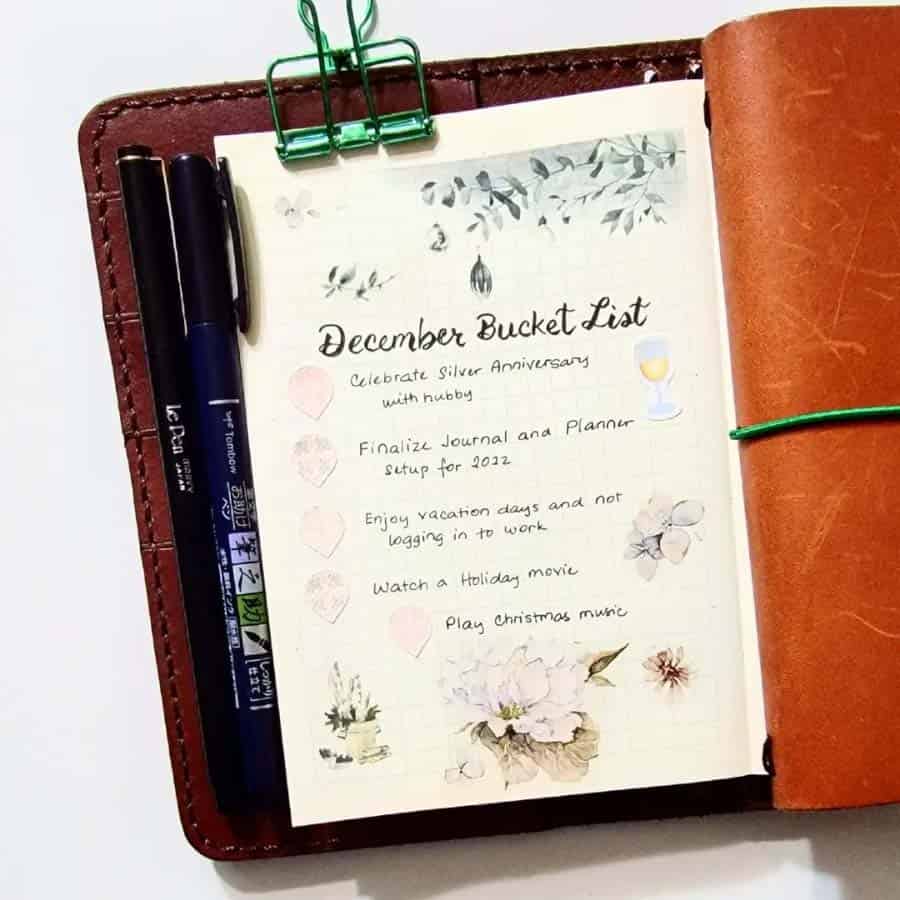 December Bucket List
Celebrate Silver Anniversary
with hubby
Finalize Journal and Planner
setup for 2022
Enjoy vacation days and not
logging in to work
Watch a Holiday movie
Play Christmas music
Le Pen
MARVY
JAPAN
Tombow
筆之助